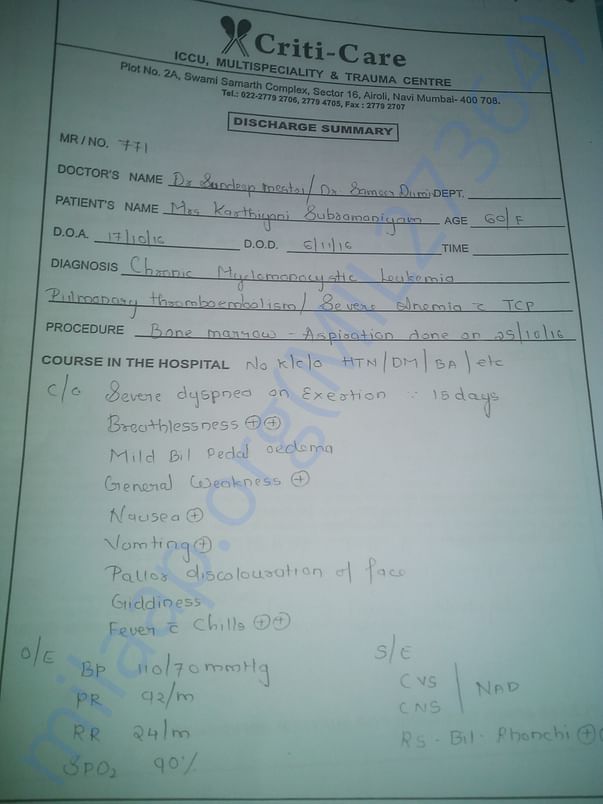 Criti-Care
ICCU, MULTISPECIALITY & TRAUMA CENTRE
Plot No. 2A, Swami Samarth Complex, Sector 16, Airoli, Navi Mumbai- 400 708.
Tel.: 022-2779 2706, 2779 4705, Fax : 2779 2707
DISCHARGE SUMMARY
MR / NO. 771
DOCTOR'S NAME Dr Sandeep / Dr. Sameer DEPT.
PATIENT'S NAME Mrs Karthiyani Subramaniyam AGE 60/F
D.O.A. 17/10/16 D.O.D. 6/11/16 TIME
DIAGNOSIS Chronic Myelomonocystic Leukemia
Pulmonary thromboembolism / Severe Anemia c̄ TCP
PROCEDURE Bone marrow - Aspiration done on 25/10/16
COURSE IN THE HOSPITAL No k/c/o HTN / DM / BA / etc
C/O Severe dyspnea on Exertion 15 days
Breathlessness ⊕⊕
Mild Bil Pedal oedema
General Weakness ⊕
Nausea ⊕
Vomting ⊕
Pallor discolouration of face
Giddiness
Fever c̄ Chills ⊕⊕
O/E S/E
BP 110/70 mmHg CVS
PR 92/m CNS NAD
RR 24/m RS - Bil - Rhonchi ⊕
SPO2 90%
milaap.org(MIL27364)